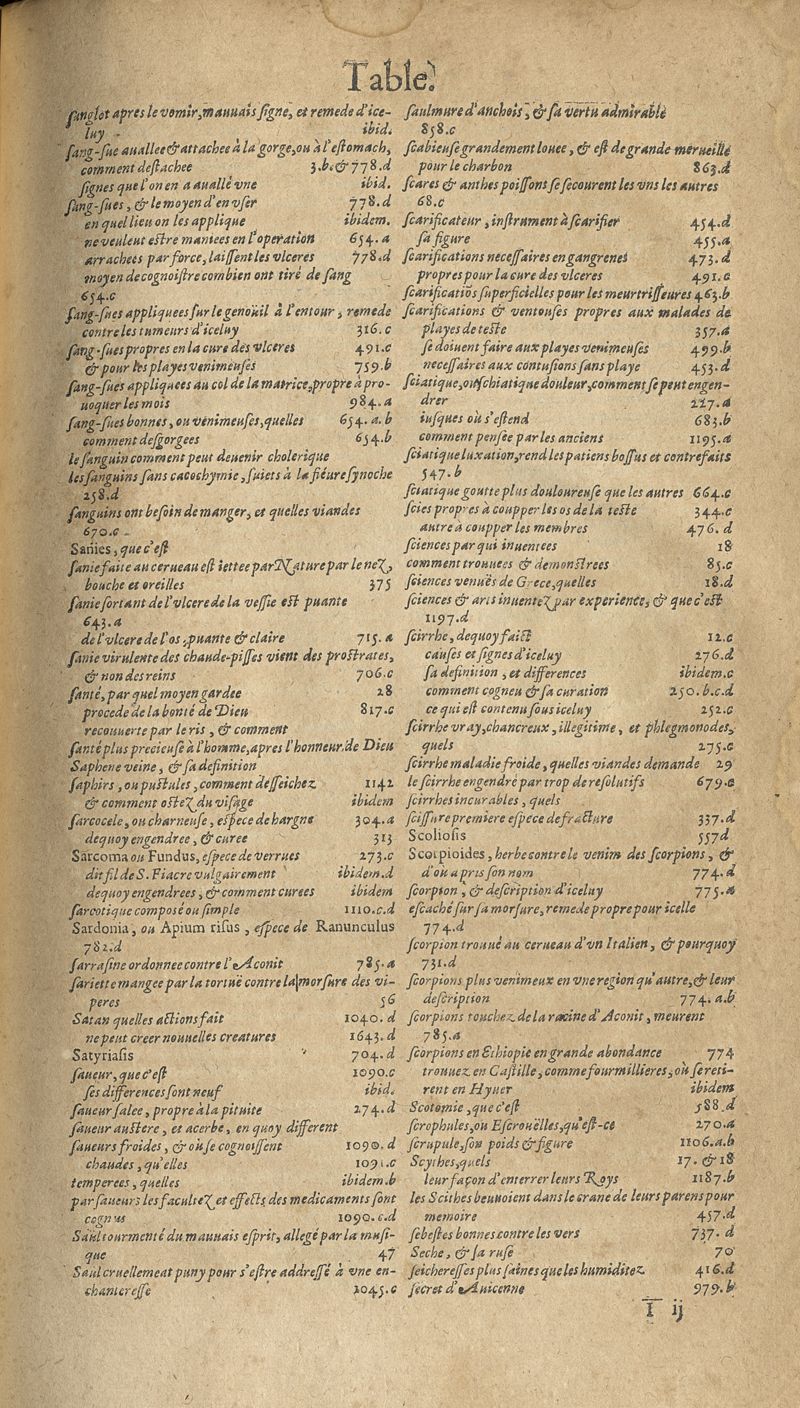 Table.
sanglot apres le vomir, mauuais signe, et remede d'ice-
luy ibid.
sang-sue auallee & attachee à la gorge, ou à l'estomach,
comment destachee 3.b. & 778.d
signes que l'on en a auallé vne ibid.
sang-sues, & le moyen d'en vser 778.d
en quel lieu on les applique ibidem.
ne veulent estre maniees en l'operation 654.a
arrachees par force, laissent les vlceres 778.d
moyen de cognoistre combien ont tiré de sang
654.c
sang-sues appliquees sur le genoüil à l'entour, remede
contre les tumeurs d'iceluy 316.c
sang-sues propres en la cure des vlceres 491.c
& pour les playes venimeuses 759.b
sang-sues appliquees au col de la matrice, propre à pro-
uoquer les mois 984.a
sang-sues bonnes, ou venimeuses, quelles 654.a.b
comment desgorgees 654.b
le sanguin comment peut deuenir cholerique
les sanguins sans cacochymie, suiets à la fiéure synoche
258.d
sanguins ont besoin de manger, et quelles viandes
670.c
Sanies, que c'est
sanie faite au cerueau est iettee par Nature par le nez,
bouche et oreilles 375
sanie sortant de l'vlcere de la vessie est puante
643.a
de l'vlcere de l'os, puante & claire 715.a
sanie virulente des chaude-pisses vient des prostrates,
& non des reins 706.c
santé, par quel moyen gardee 28
procede de la bonté de Dieu 817.c
recouuerte par le ris, & comment
santé plus precieuse à l'homme, apres l'honneur de Dieu
Saphene veine, & sa definition
saphirs, ou pustules, comment desseichez 1142
& comment ostez du visage ibidem
sarcocele, ou charneuse, espece de hargne 304.a
dequoy engendree, & curee 313
Sarcoma ou Fundus, espece de verrues 273.c
dit fil de S. Fiacre vulgairement ibidem.d
dequoy engendrees, & comment curees ibidem
sarcotique composé ou simple 1110.c.d
Sardonia, ou Apium risus, espece de Ranunculus
782.d
sarrasine ordonnee contre l'Aconit 785.a
sariette mangee par la tortuë contre la morsure des vi-
peres 56
Satan quelles actions fait 1040.d
ne peut creer nouuelles creatures 1643.d
Satyriasis 704.d
saueur, que c'est 1090.c
ses differences sont neuf ibid.
saueur salee, propre à la pituite 274.d
saueur austere, et acerbe, en quoy different
saueurs froides, & où se cognoissent 1090.d
chaudes, qu'elles 1091.c
temperees, quelles ibidem.b
par saueurs les facultez et effects des medicaments sont
cognus 1090.c.d
Saül tourmenté du mauuais esprit, allegé par la musi-
que 47
Saul cruellemeat puny pour s'estre addressé à vne en-
chanteresse 1045.c
saulmure d'anchois, & sa vertu admirable
858.c
scabieuse grandement louee, & est de grande merueille
pour le charbon 863.d
scares & anthes poissons se secourent les vns les autres
68.c
scarificateur, instrument à scarifier 454.d
sa figure 455.a
scarifications necessaires en gangrenes 473.d
propres pour la cure des vlceres 491.c
scarificatiõs superficielles pour les meurtrisseures 463.b
scarifications & ventouses propres aux malades de
playes de teste 357.a
se doiuent faire aux playes venimeuses 499.b
necessaires aux contusions sans playe 453.d
sciatique, ou schiatique douleur, comment se peut engen-
drer 227.a
iusques où s'estend 683.b
comment pensée par les anciens 1195.a
sciatique luxation, rend les patiens bossus et contrefaits
547.b
sciatique goutte plus douloureuse que les autres 664.c
scies propres à coupper les os de la teste 344.c
autre à coupper les membres 476.d
sciences par qui inuentees 18
comment trouuees & demonstrees 85.c
sciences venuës de Grece, quelles 18.d
sciences & arts inuentez par experience, & que c'est
1197.d
scirrhe, dequoy faict 12.c
causes et signes d'iceluy 276.d
sa definition, et differences ibidem.c
comment cogneu & sa curation 250.b.c.d
ce qui est contenu sous iceluy 252.c
scirrhe vray, chancreux, illegitime, et phlegmonodes,
quels 275.c
scirrhe maladie froide, quelles viandes demande 29
le scirrhe engendré par trop de resolutifs 679.c
scirrhes incurables, quels
scissure premiere espece de fracture 337.d
Scoliosis 557d
Scorpioides, herbe contre le venim des scorpions, &
d'où a pris son nom 774.d
scorpion, & description d'iceluy 775.a
escaché sur sa morsure, remede propre pour icelle
774.d
scorpion trouué au cerueau d'vn Italien, & pourquoy
731.d
scorpions plus venimeux en vne region qu'autre, & leur
description 774.a.b
scorpions touchez de la racine d'Aconit, meurent
785.a
scorpions en Ethiopie en grande abondance 774
trouuez en Castille, comme fourmillieres, où se reti-
rent en Hyuer ibidem
Scotomie, que c'est 588.d
scrophules, ou Escrouëlles, qu'est-ce 270.a
scrupule, son poids & figure 1106.a.b
Scythes, quels 17. & 18
leur façon d'enterrer leurs Roys 1187.b
les Scithes beuuoient dans le crane de leurs parens pour
memoire 457.d
sebestes bonnes contre les vers 737.d
Seche, & sa ruse 70
seicheresses plus saines que les humiditez 416.d
secret d'Auicenne 979.b
T ij